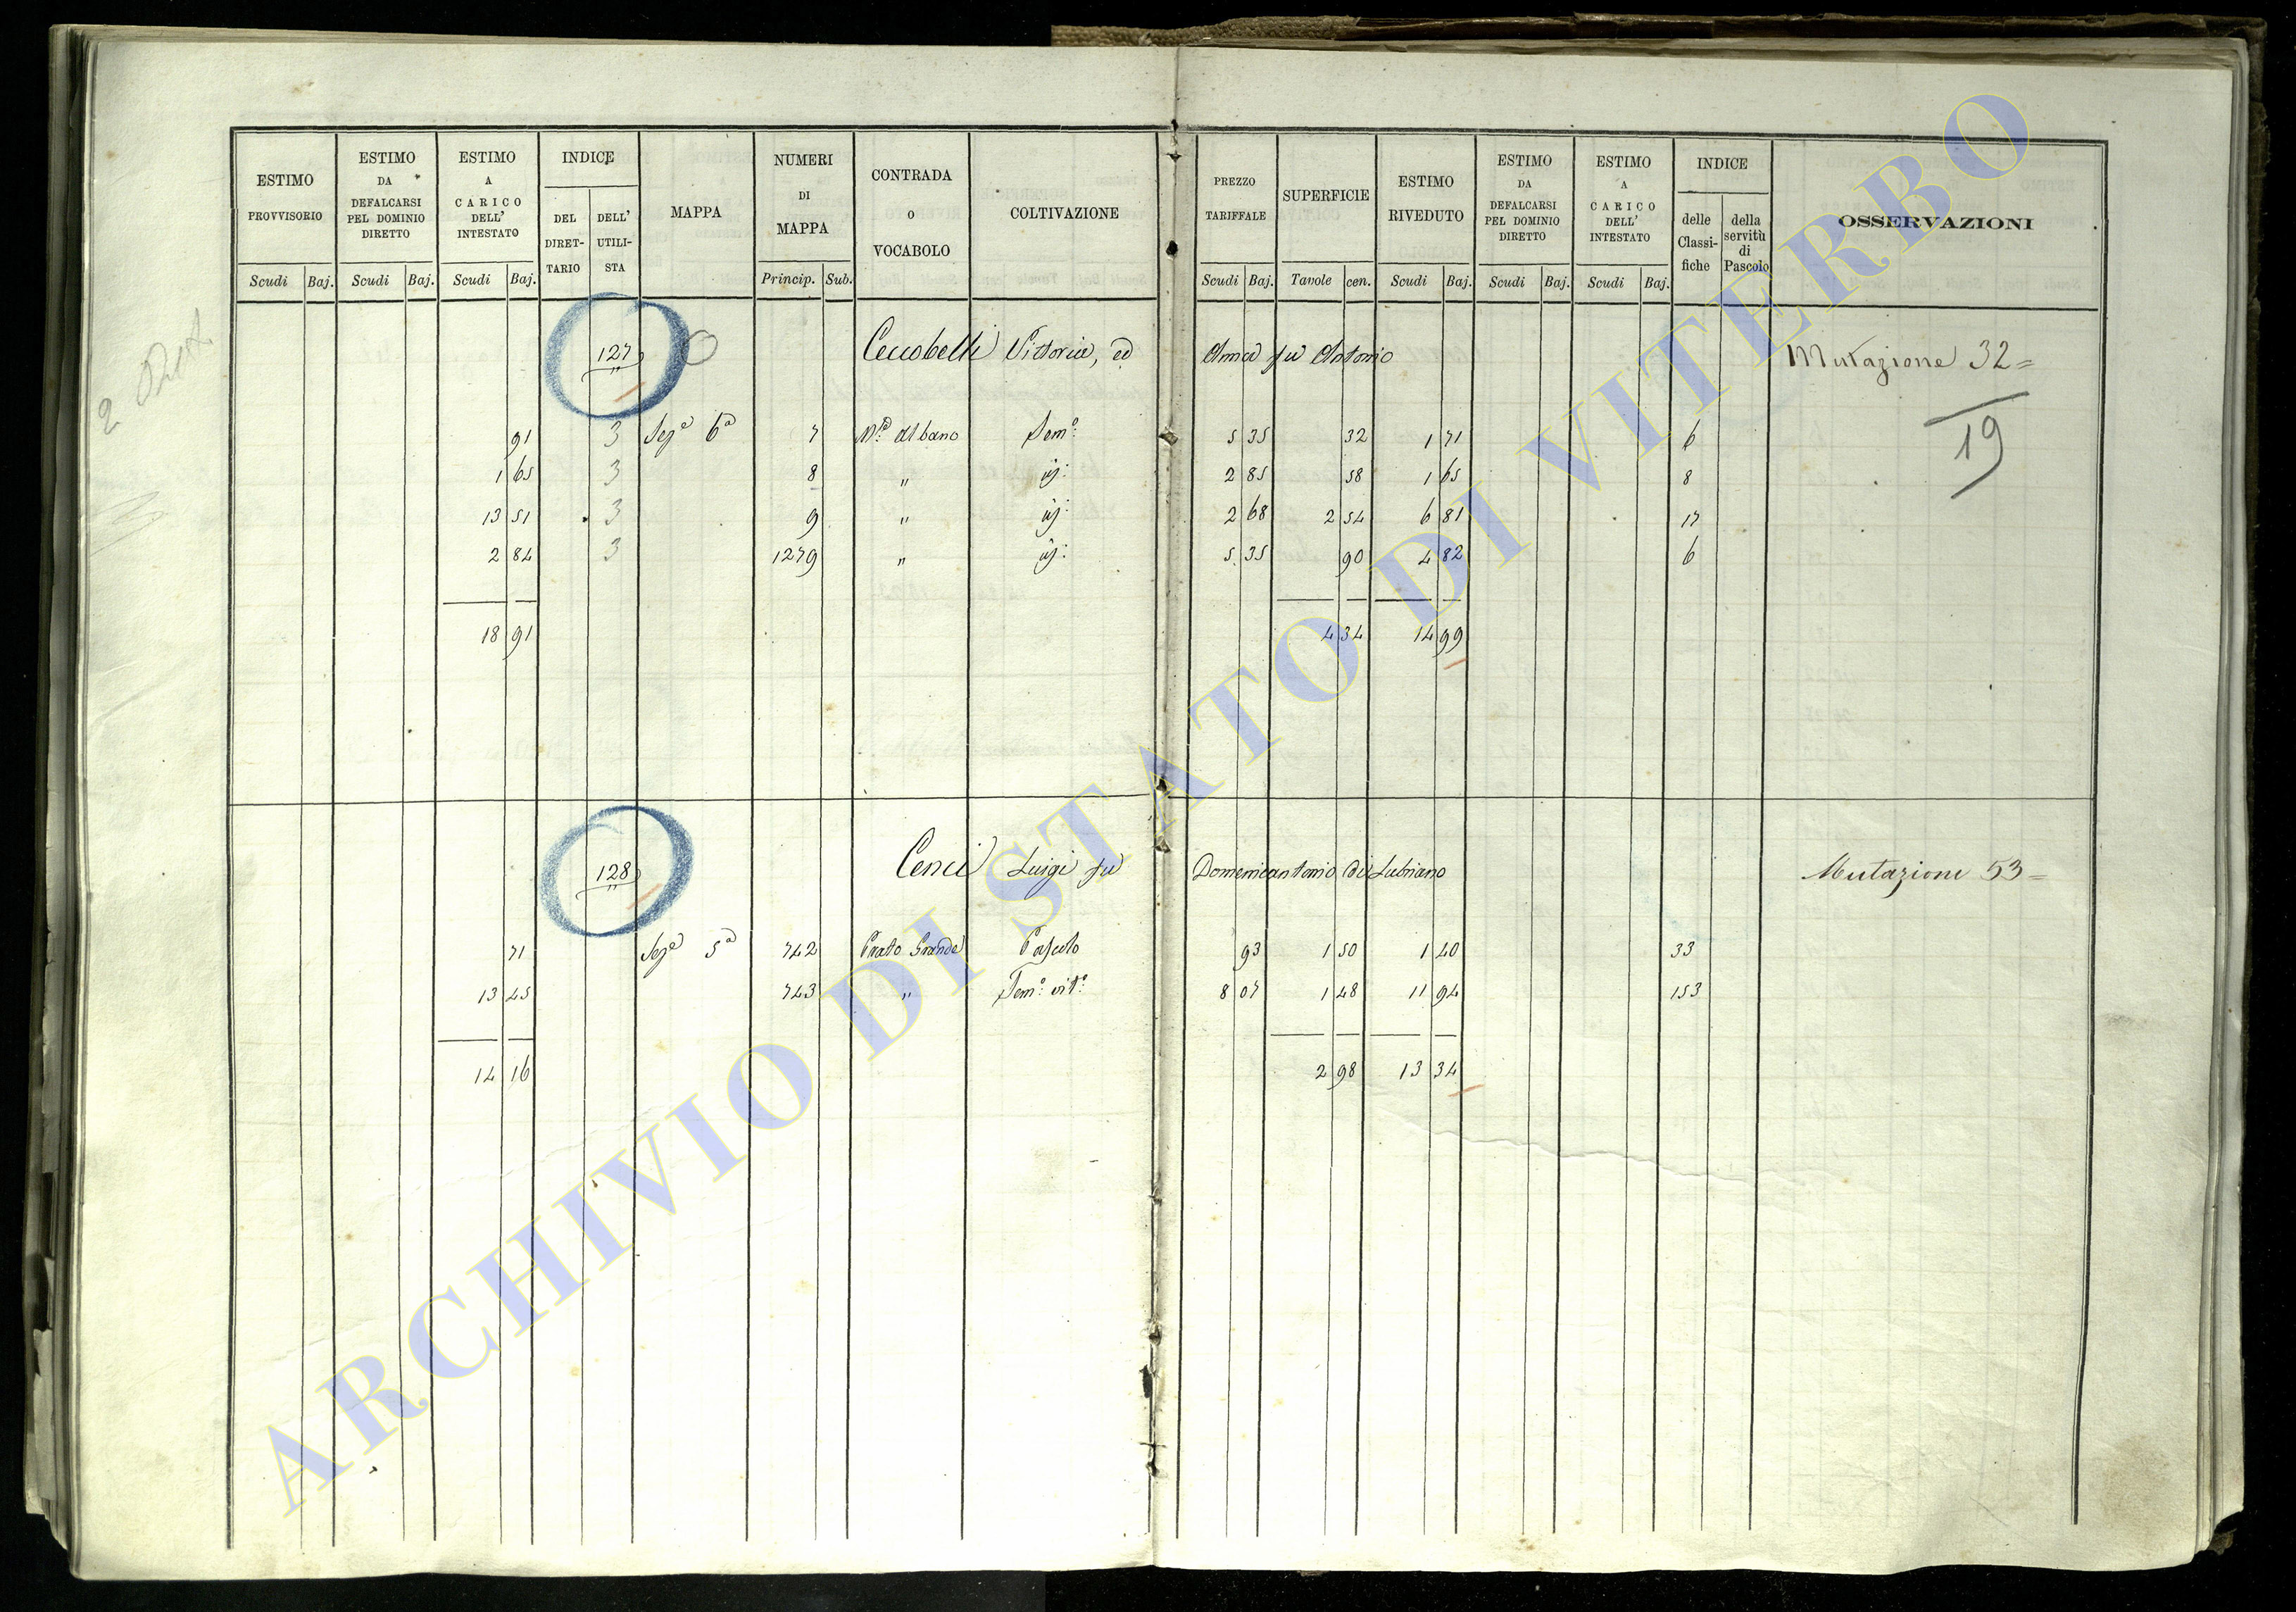 ESTIMO PROVVISORIO
Scudi Baj.
ESTIMO DA DEFALCARSI PEL DOMINIO DIRETTO
Scudi Baj.
ESTIMO A CARICO DELL' INTESTATO
Scudi Baj.
INDICE
DEL DIRET-TARIO
DELL' UTILI-STA
MAPPA
NUMERI DI MAPPA
Princip. Sub.
CONTRADA o VOCABOLO
COLTIVAZIONE
PREZZO TARIFFALE
Scudi Baj.
SUPERFICIE
Tavole cen.
ESTIMO RIVEDUTO
Scudi Baj.
ESTIMO DA DEFALCARSI PEL DOMINIO DIRETTO
Scudi Baj.
ESTIMO A CARICO DELL' INTESTATO
Scudi Baj.
INDICE
delle Classi-fiche
della servitù di Pascolo
OSSERVAZIONI
127 Ceccobelli Vittoria, ed Anna fu Antonio Mutazione 32=
19
91 3 Sezª 6ª 7 Mte Albano Semº 5 35 32 1 71 6
1 65 3 8 " id: 2 85 58 1 65 8
13 51 3 9 " id: 2 68 2 54 6 81 17
2 84 3 1279 " id: 5 35 90 4 82 6
18 91 4 34 14 99
128 Cenci Luigi fu Domenicantonio di Lubriano Mutazione 53=
71 Sezª 5ª 742 Prato Grande Pascolo 93 1 50 1 40 33
13 45 743 " Semº vitº 8 07 1 48 11 94 153
14 16 2 98 13 34
2
ARCHIVIO DI STATO DI VITERBO